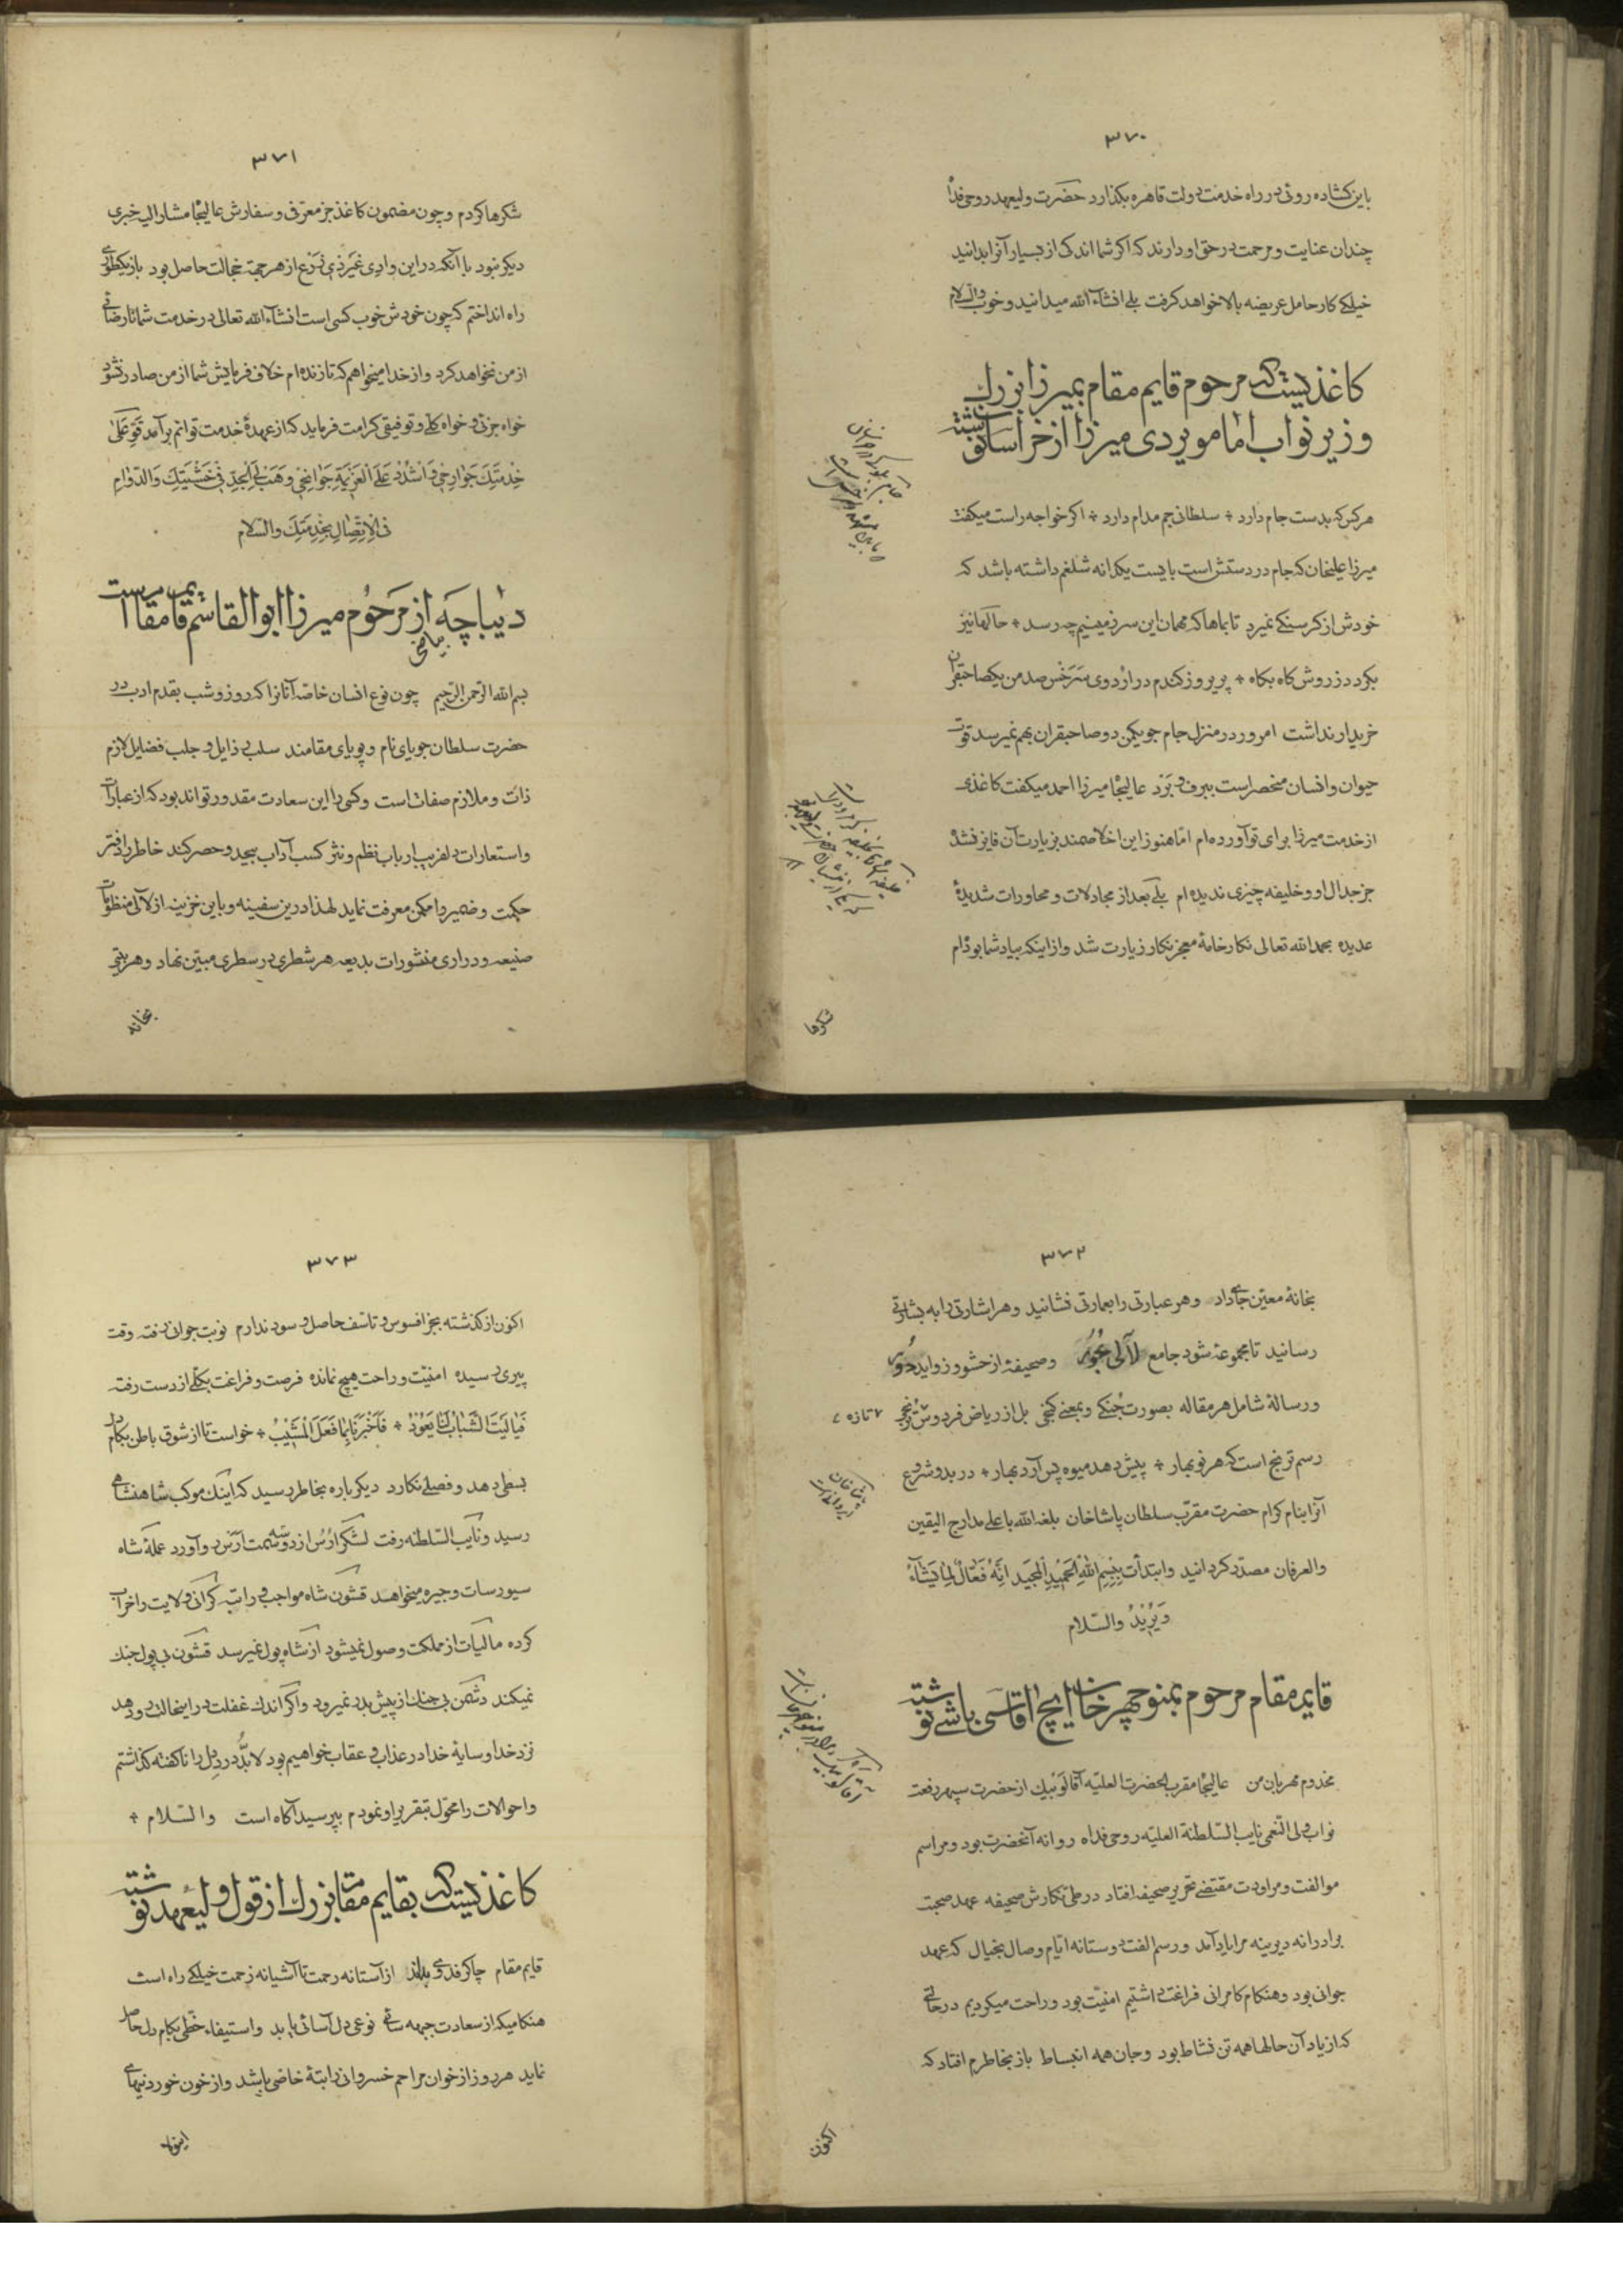 ۳۷۰
باین کشاده روئی در راه خدمت دولت قاهره بکذارد حضرت ولیعهد روحی فداه
چندان عنایت و مرحمت در حق او دارند که اکر شما اندکی از بسیار آنرا بدانید
خیلی کار حامل عریضه بالا خواهد کرفت بلی انشاءالله میدانید و خوب والسلام
کاغذیست که مرحوم قایم مقام بمیرزا بزرک
وزیر نواب امامویردی میرزا از خراسان نوشته
هر کس که بدست جام دارد + سلطانی جم مدام دارد + اکر خواجه راست میکفت
میرزا علیخان که جام در دستش است بایست یکدانه شلغم داشته باشد که
خودش از کرسنکی نمیرد تا بماها که مهمان این سرزمینیم چه رسد + حالها نیز
بکردد ز روش کاه بکاه + پریروز کندم در اردوی سرخس صد من یکصاحبقران
خریدار نداشت امروز در منزل جام جو یکمن دو صاحبقران بهم نمیرسد قوت
حیوان و انسان منحصر است ببرف و برد عالیجاه میرزا احمد میکفت کاغذی
از خدمت میرزا برای تو آورده‌ام اما هنوز این اخلاصمند بزیارت آن فایز نشده
جز جدال او و خلیفه چیزی ندیده ام بلی بعد از مجادلات و محاورات شدیدهٔ
عدیده بحمدالله تعالی نکار خامهٔ معجز نکار زیارت شد و از اینکه بیاد شما بوده‌ام
شکرها
۳۷۱
شکرها کردم و چون مضمون کاغذ جز معرفی و سفارش عالیجاه مشارالیه خبری
دیکر نبود با آنکه در این وادی غیر ذی زرع از هر جهة خجالت حاصل بود باز یکطوری
راه انداختم که چون خودش خوب کسی است انشاءالله تعالی در خدمت شما نارضائی
از من نخواهد کرد و از خدا میخواهم که تا زنده‌ام خلاف فرمایش شما از من صادر نشود
خواه جزئی و خواه کلی و توفیقی کرامت فرماید که از عهدهٔ خدمت توانم برآمد قَوِّ عَلیٰ
خِدْمَتِکَ جَوارِحی وَ اشْدُدْ عَلَی الْعَزیمَةِ جَوانِحی وَ هَبْ لِیَ الْجِدَّ فی خَشْیَتِکَ وَالدَّوامَ
فِی الْاِتِّصالِ بِخِدْمَتِکَ والسلام
دیباچه از مرحوم میرزا ابوالقاسم قایم مقام است
بیاضی
بسم الله الرحمن الرحیم چون نوع انسان خاصه آنانرا که روز و شب بقدم ادب در
حضرت سلطان جویای نام و پویای مقامند سلب رذایل و جلب فضایل لازم
ذات و ملازم صفات است و کسی را این سعادت مقدور تواند بود که از عبارات
و استعارات دلفریب ارباب نظم و نثر کسب آداب بیحد و حصر کند خاطر را دفتر
حکمت و ضمیر را مکمن معرفت نماید لهذا درین سفینه و باین خزینه از لآلی منظومات
صنیعه و دراری منثورات بدیعه هر شطری در سطری مبین نهاد و هر بیتی
بخانهٔ
۳۷۲
بخانهٔ معین جای داد و هر عبارتی را بعمارتی نشانید و هر اشارتی را به بشارتی
رسانید تا مجموعهٔ شود جامع لآلی غرر و صحیفهٔ از حشو و زواید
و رسالهٔ شامل هر مقاله بصورت جنکی و بمعنی کنجی بل از ریاض فردوس ترنجی تازه
رسم ترنج است که هر نوبهار + پیش دهد میوه پس آرد بهار + در بدو شروع
آنرا بنام کرام حضرت مقرب سلطان پاشاخان بلغه الله باعلی مدارج الیقین
والعرفان مصدر کردانید وابتدأت بِبِسْمِ اللهِ الحَمیدِ المَجیدِ اِنَّهُ فَعّالٌ لِما یَشآءُ
وَ یُرِیدُ والسلام
قایم مقام مرحوم بمنوچهر خان ایچ اقاسی باشی نوشته
مخدوم مهربان من عالیجاه مقرب الحضرت العلیه آقا لوبیک از حضرت سپهر رفعت
نواب ولی النعمی نایب السلطنة العلیه روحی فداه روانه آنحضرت بود و مراسم
موالفت و مراودت مقتضی تحریر صحیفه افتاد در طی نکارش صحیفه عهد صحبت
برادرانه دیرینه مرا بیاد آمد و رسم الفت دوستانه ایام وصال بخیال که عهد
جوانی بود و هنکام کامرانی فراغت داشتیم امنیت بود و راحت میکردیم در حالتی
که از یاد آن حالها همه تن نشاط بود و جان همه انبساط باز بخاطرم افتاد که
اکنون
۳۷۳
اکنون از کذشته بجز افسوس و تاسف حاصل و سود ندارم نوبت جوانی رفته وقت
پیری رسیده امنیت و راحت هیچ نمانده فرصت و فراغت بکلی از دست رفته
فَیالَیْتَ الشَّبابَ لَنا یَعُودُ + فَاُخْبِرَنا بِما فَعَلَ الْمَشیبُ + خواست تا از شوق باطن بکام دل
بسطی دهد و فصلی نکارد دیکر باره بخاطر رسید که اینک موکب شاهنشاهی
رسید و نایب السلطنه رفت لشکر اُرُس از دو سه سمت ارس رو آورد عملهٔ شاه
سیورسات و جیره میخواهد قشون شاه مواجب و راتبه کرانی ولایت را خراب
کرده مالیات از مملکت وصول نمیشود از شاه پول نمیرسد قشون بی پول جنک
نمیکند دشمن بی جنک از پیش بدر نمیرود و اکر اندک غفلت در اینحالت رو دهد
نزد خدا و سایهٔ خدا در عذاب و عقاب خواهیم بود لابد درد دل را ناکفته کذاشتم
و احوالات را محول بتقریر او نمودم بپرسید آکاه است والسلام +
کاغذیست که بقایم مقام بزرک از قول ولیعهد نوشته
قایم مقام چاکر فدوی بداند از آستانه رحمت تا آشیانه زحمت خیلی راه است
هنکامیکه از سعادت جبهه سائی نوعی دل آسائی یابد و استیفاء حظی بکام دل حاصل
نماید هر روز از خوان مراحم خسروانی راتبهٔ خاصی یابد و از خون خوردنیهای
اینولا